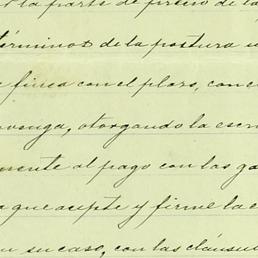 la parte de precio de la
términos de la postura
finca con el plazo, con
venga, otorgando la escri
mente al pago con las ga
que acepte y firme la e
su caso, con las cláusu